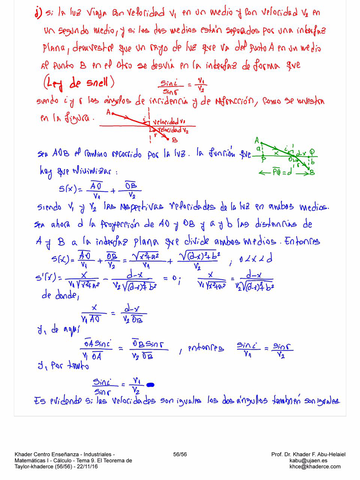 j) si la luz viaja con velocidad v₁ en un medio y con velocidad v₂ en
un segundo medio, y si los dos medios están separados por una interfaz
plana, demuestre que un rayo de luz que va del punto A en un medio
al punto B en el otro se desvía en la interfaz de forma que
(Ley de snell) sen i / sen r = v₁ / v₂
siendo i y r los ángulos de incidencia y de refracción, como se muestra
en la figura.
velocidad v₁
velocidad v₂
A
B
Sea AOB el camino recorrido por la luz. la función que
hay que minimizar:
S(x) = AO / v₁ + OB / v₂
A
a
x
d-x
b
B
siendo v₁ y v₂ las respectivas velocidades de la luz en ambos medios.
Sea ahora d la proyección de AO y OB y a y b las distancias de
A y B a la interfaz plana que divide ambos medios. Entonces
S(x) = AO / v₁ + OB / v₂ = √(x²+a²) / v₁ + √((d-x)²+b²) / v₂ ; 0<x<d
S'(x) = x / (v₁ √(x²+a²)) - (d-x) / (v₂ √((d-x)²+b²)) = 0 ; x / (v₁ √(x²+a²)) = (d-x) / (v₂ √((d-x)²+b²))
de donde,
x / (v₁ AO) = (d-x) / (v₂ OB)
y, de aquí
OA sen i / (v₁ OA) = OB sen r / (v₂ OB) , entonces sen i / v₁ = sen r / v₂
y, por tanto
sen i / sen r = v₁ / v₂
Es evidente si las velocidades son iguales los dos ángulos también son iguales
Khader Centro Enseñanza - Industriales -
Matemáticas I - Cálculo - Tema 9. El Teorema de
Taylor-khaderce (56/56) - 22/11/16
56/56
Prof. Dr. Khader F. Abu-Helaiel
kabu@ujaen.es
khce@khaderce.com